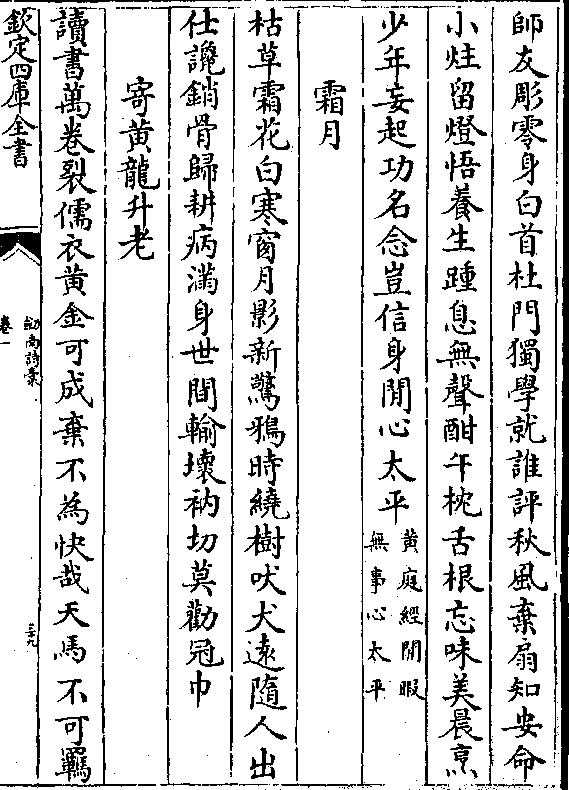 師友彫零身白首杜門獨學就誰評秋風棄扇知安命
小炷留燈悟養生踵息無聲酣午枕舌根忘味美晨烹
少年妄起功名念豈信身閒心太平黄庭經閒暇
無事心太平
霜月
枯草霜花白寒窗月影新驚鴉時繞樹吠犬遠隨人出
仕讒銷骨歸耕病滿身世間輸壞衲切莫勸冠巾
寄黄龍升老
讀書萬卷裂儒衣黄金可成棄不為快哉天馬不可羈
欽定四庫全書
劒南詩藁
卷一
三十九